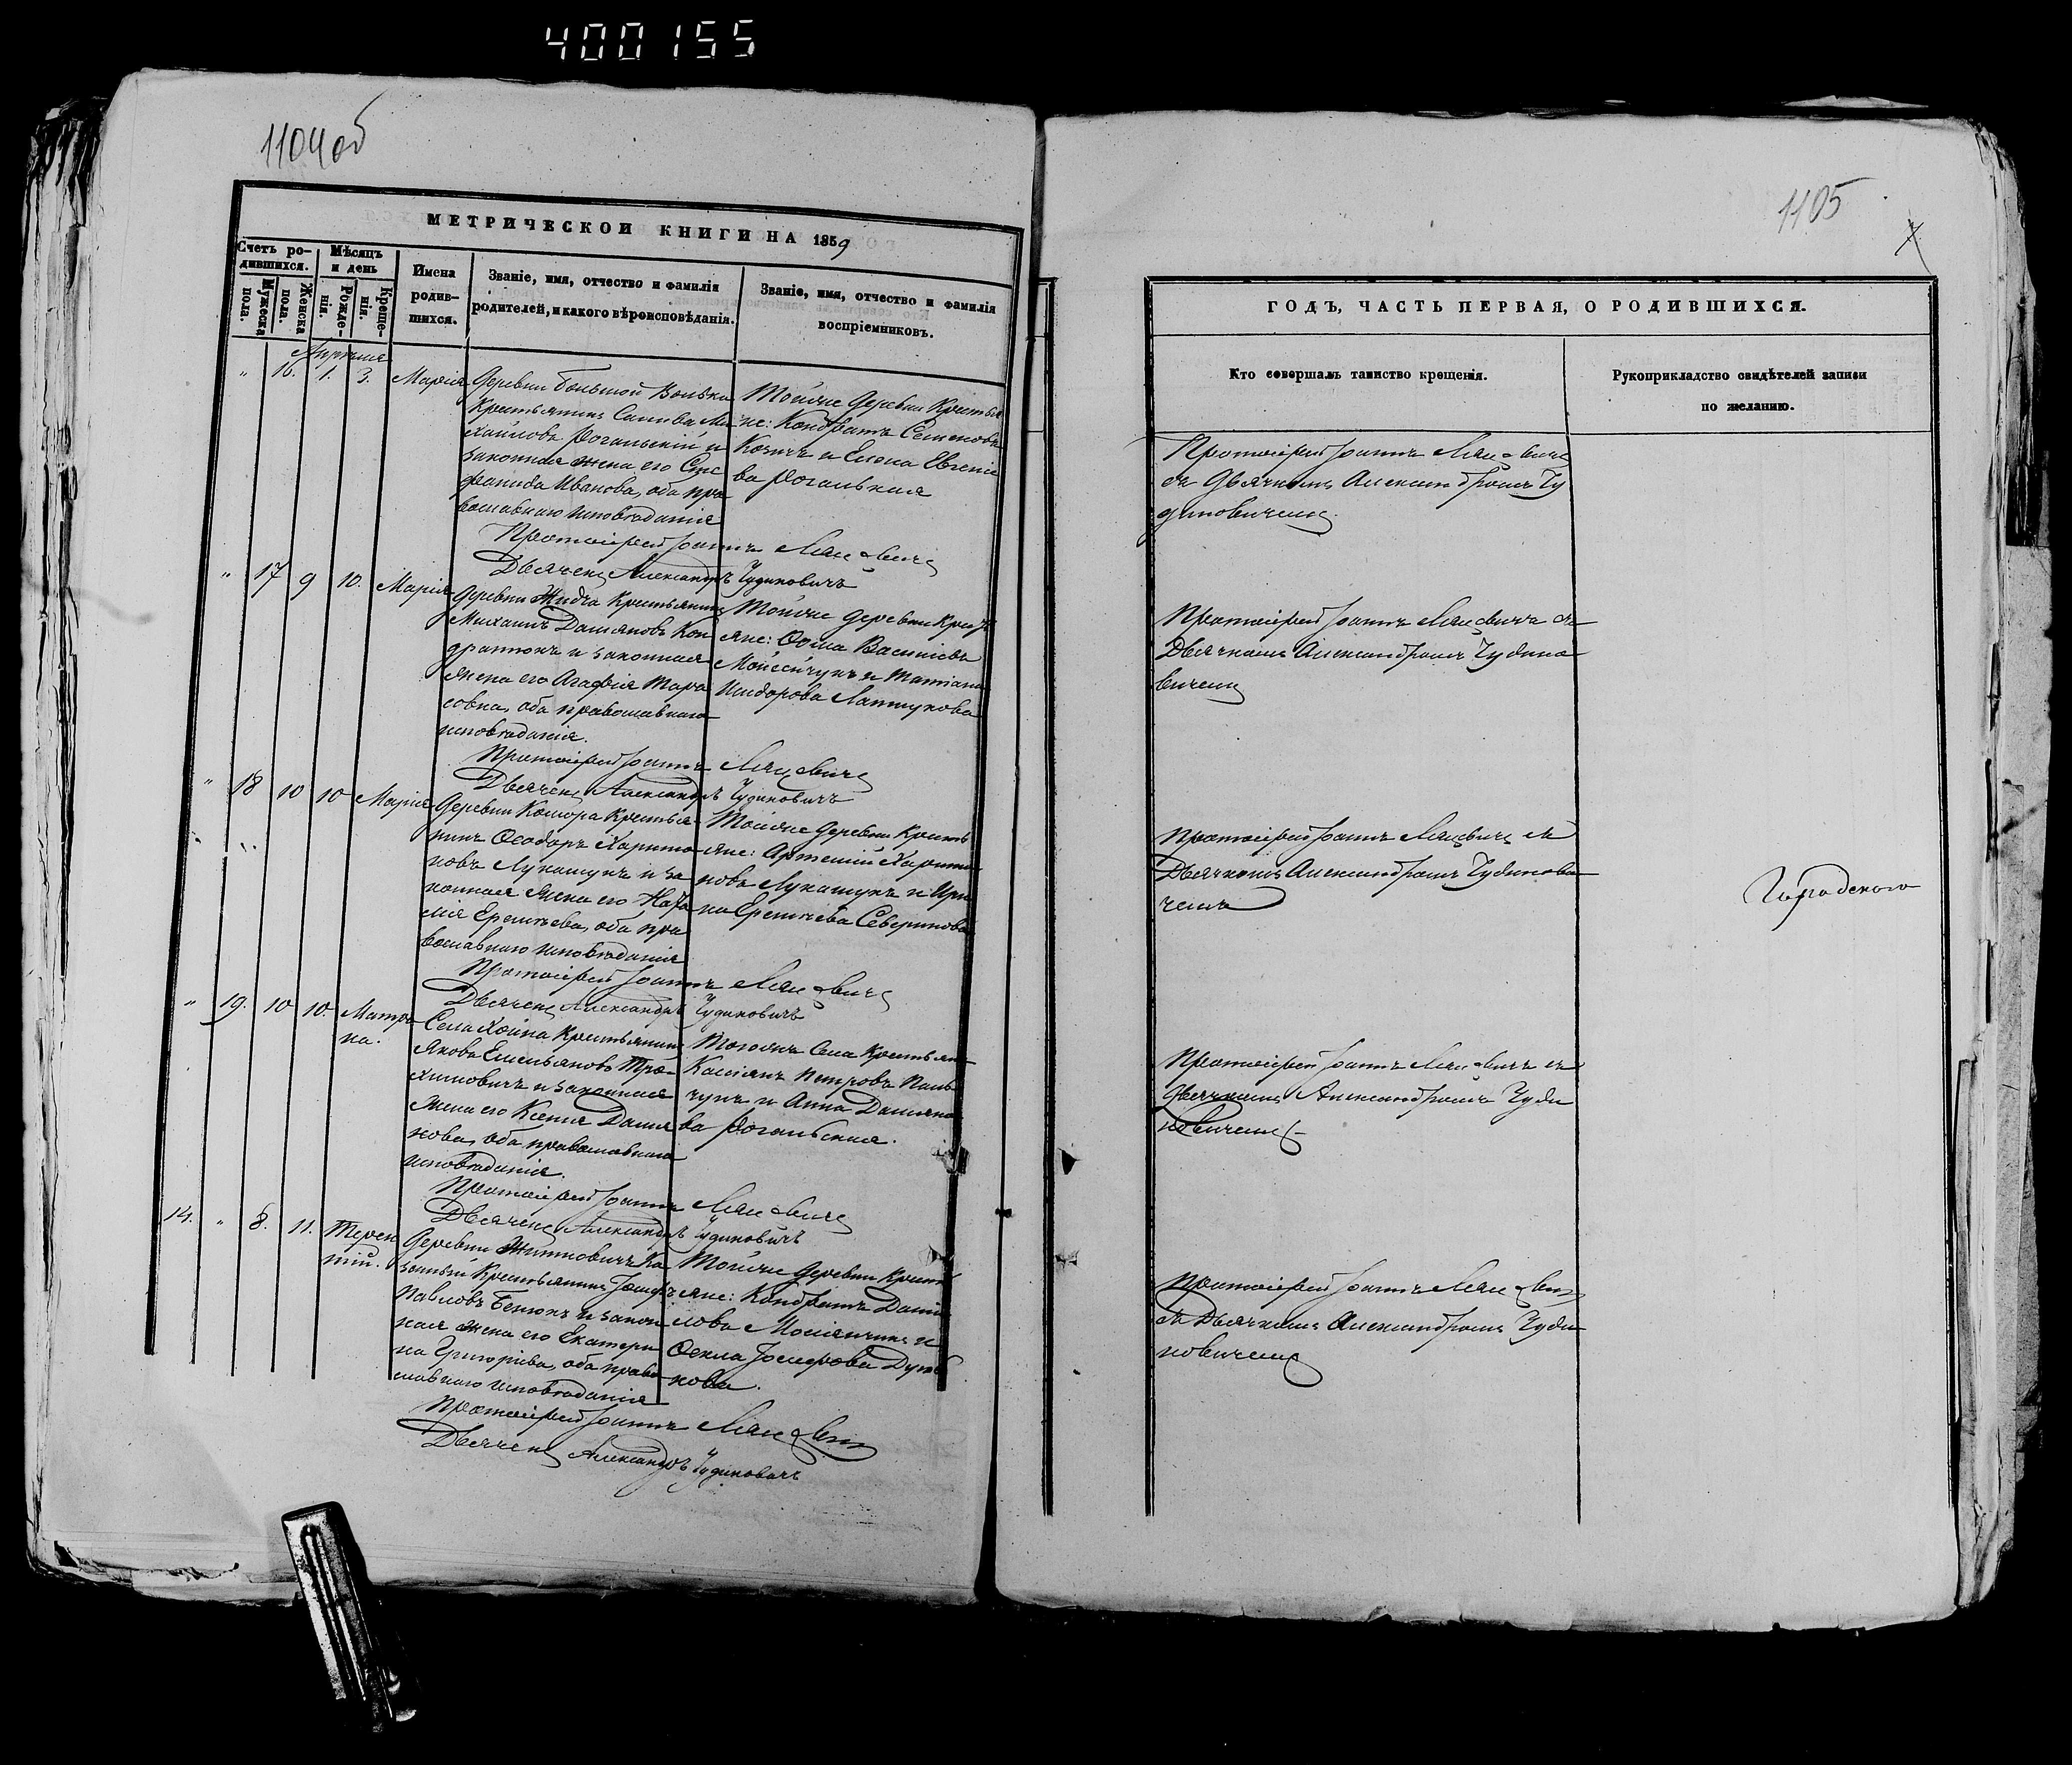 400155
1104об
МЕТРИЧЕСКОЙ КНИГИ НА 1859
Счетъ ро-
дившихся.
Мѣсяцъ
и день
Мужеска
пола.
Женска
пола.
Рожде-
нія.
Креще-
нія.
Имена
родив-
шихся.
Званіе, имя, отчество и фамилія
родителей, и какого вѣроисповѣданія.
Званіе, имя, отчество и фамилія
воспріемниковъ.
Апрѣля
" 16. 1. 3. Марія
Деревни Большой
Крестьянинъ Савва Ми
хайловъ Рогальскій и
законная жена его Сте
фанида Иванова, оба пра
вославнаго исповѣданія
Тойже деревни Крестья
не: Кондратъ Семеновъ
Козичъ и Елена Евгеніе
ва Рогальская
Протоіерей Іоаннъ Лянцевичъ
Дьячекъ Александръ Чудиновичъ
" 17 9 10. Марія
Деревни Жидча Крестьянинъ
Михаилъ Даміановъ Кон
дратюкъ и законная
жена его Агафія Тара
совна, оба православнаго
исповѣданія.
Тойже деревни Крестъ
яне: Ѳома Васильевъ
Мойсейчукъ и Татіана
Исидорова Лапшукова
Протоіерей Іоаннъ Лянцевичъ
Дьячекъ Александръ Чудиновичъ
" 18 10 10 Марія
Деревни Комора Крестья
нинъ Ѳеодоръ Харито
новъ Лукашукъ и за
конная жена его Ната
лія Еремѣева, оба пра
вославнаго исповѣданія
Тойже деревни Кресть
яне: Артемій Харито
новъ Лукашукъ и Ири
на Еремѣева Северинова
Протоіерей Іоаннъ Лянцевичъ
Дьячекъ Александръ Чудиновичъ
" 19. 10 10. Матро
на.
Села Хойна Крестьянинъ
Яковъ Емельяновъ Тро
химовичъ и законная
жена его Ксенія Дамія
нова, оба православнаго
исповѣданія.
Тогожъ Села Крестьяне
Касіянъ Петровъ Паль
чукъ и Анна Даміяно
ва Рогальская.
Протоіерей Іоаннъ Лянцевичъ
Дьячекъ Александръ Чудиновичъ
14. " 8. 11. Терен
тій.
Деревни Житновичъ Ка
зенный Крестьянинъ Іосифъ
Павловъ Бенюкъ и закон
ная жена его Екатери
на Григоріева, оба право
славнаго исповѣданія
Тойже деревни Кресть
яне: Кондратъ Дани
ловъ и
Ѳекла Іосифова
кова.
Протоіерей Іоаннъ Лянцевичъ
Дьячекъ Александръ Чудиновичъ
1105
ГОДЪ, ЧАСТЬ ПЕРВАЯ, О РОДИВШИХСЯ.
Кто совершалъ таинство крещенія.
Рукоприкладство свидѣтелей записи
по желанію.
Протоіерей Іоаннъ Лянцевичъ
съ Дьячкомъ Александромъ Чу
диновичемъ.
Протоіерей Іоаннъ Лянцевичъ съ
Дьячкомъ Александромъ Чудино
вичемъ
Протоіерей Іоаннъ Лянцевичъ съ
Дьячкомъ Александромъ Чудинови
чемъ
Городского
Протоіерей Іоаннъ Лянцевичъ съ
Дьячкомъ Александромъ Чуди
новичемъ
Протоіерей Іоаннъ Лянцевичъ
съ Дьячкомъ Александромъ Чуди
новичемъ